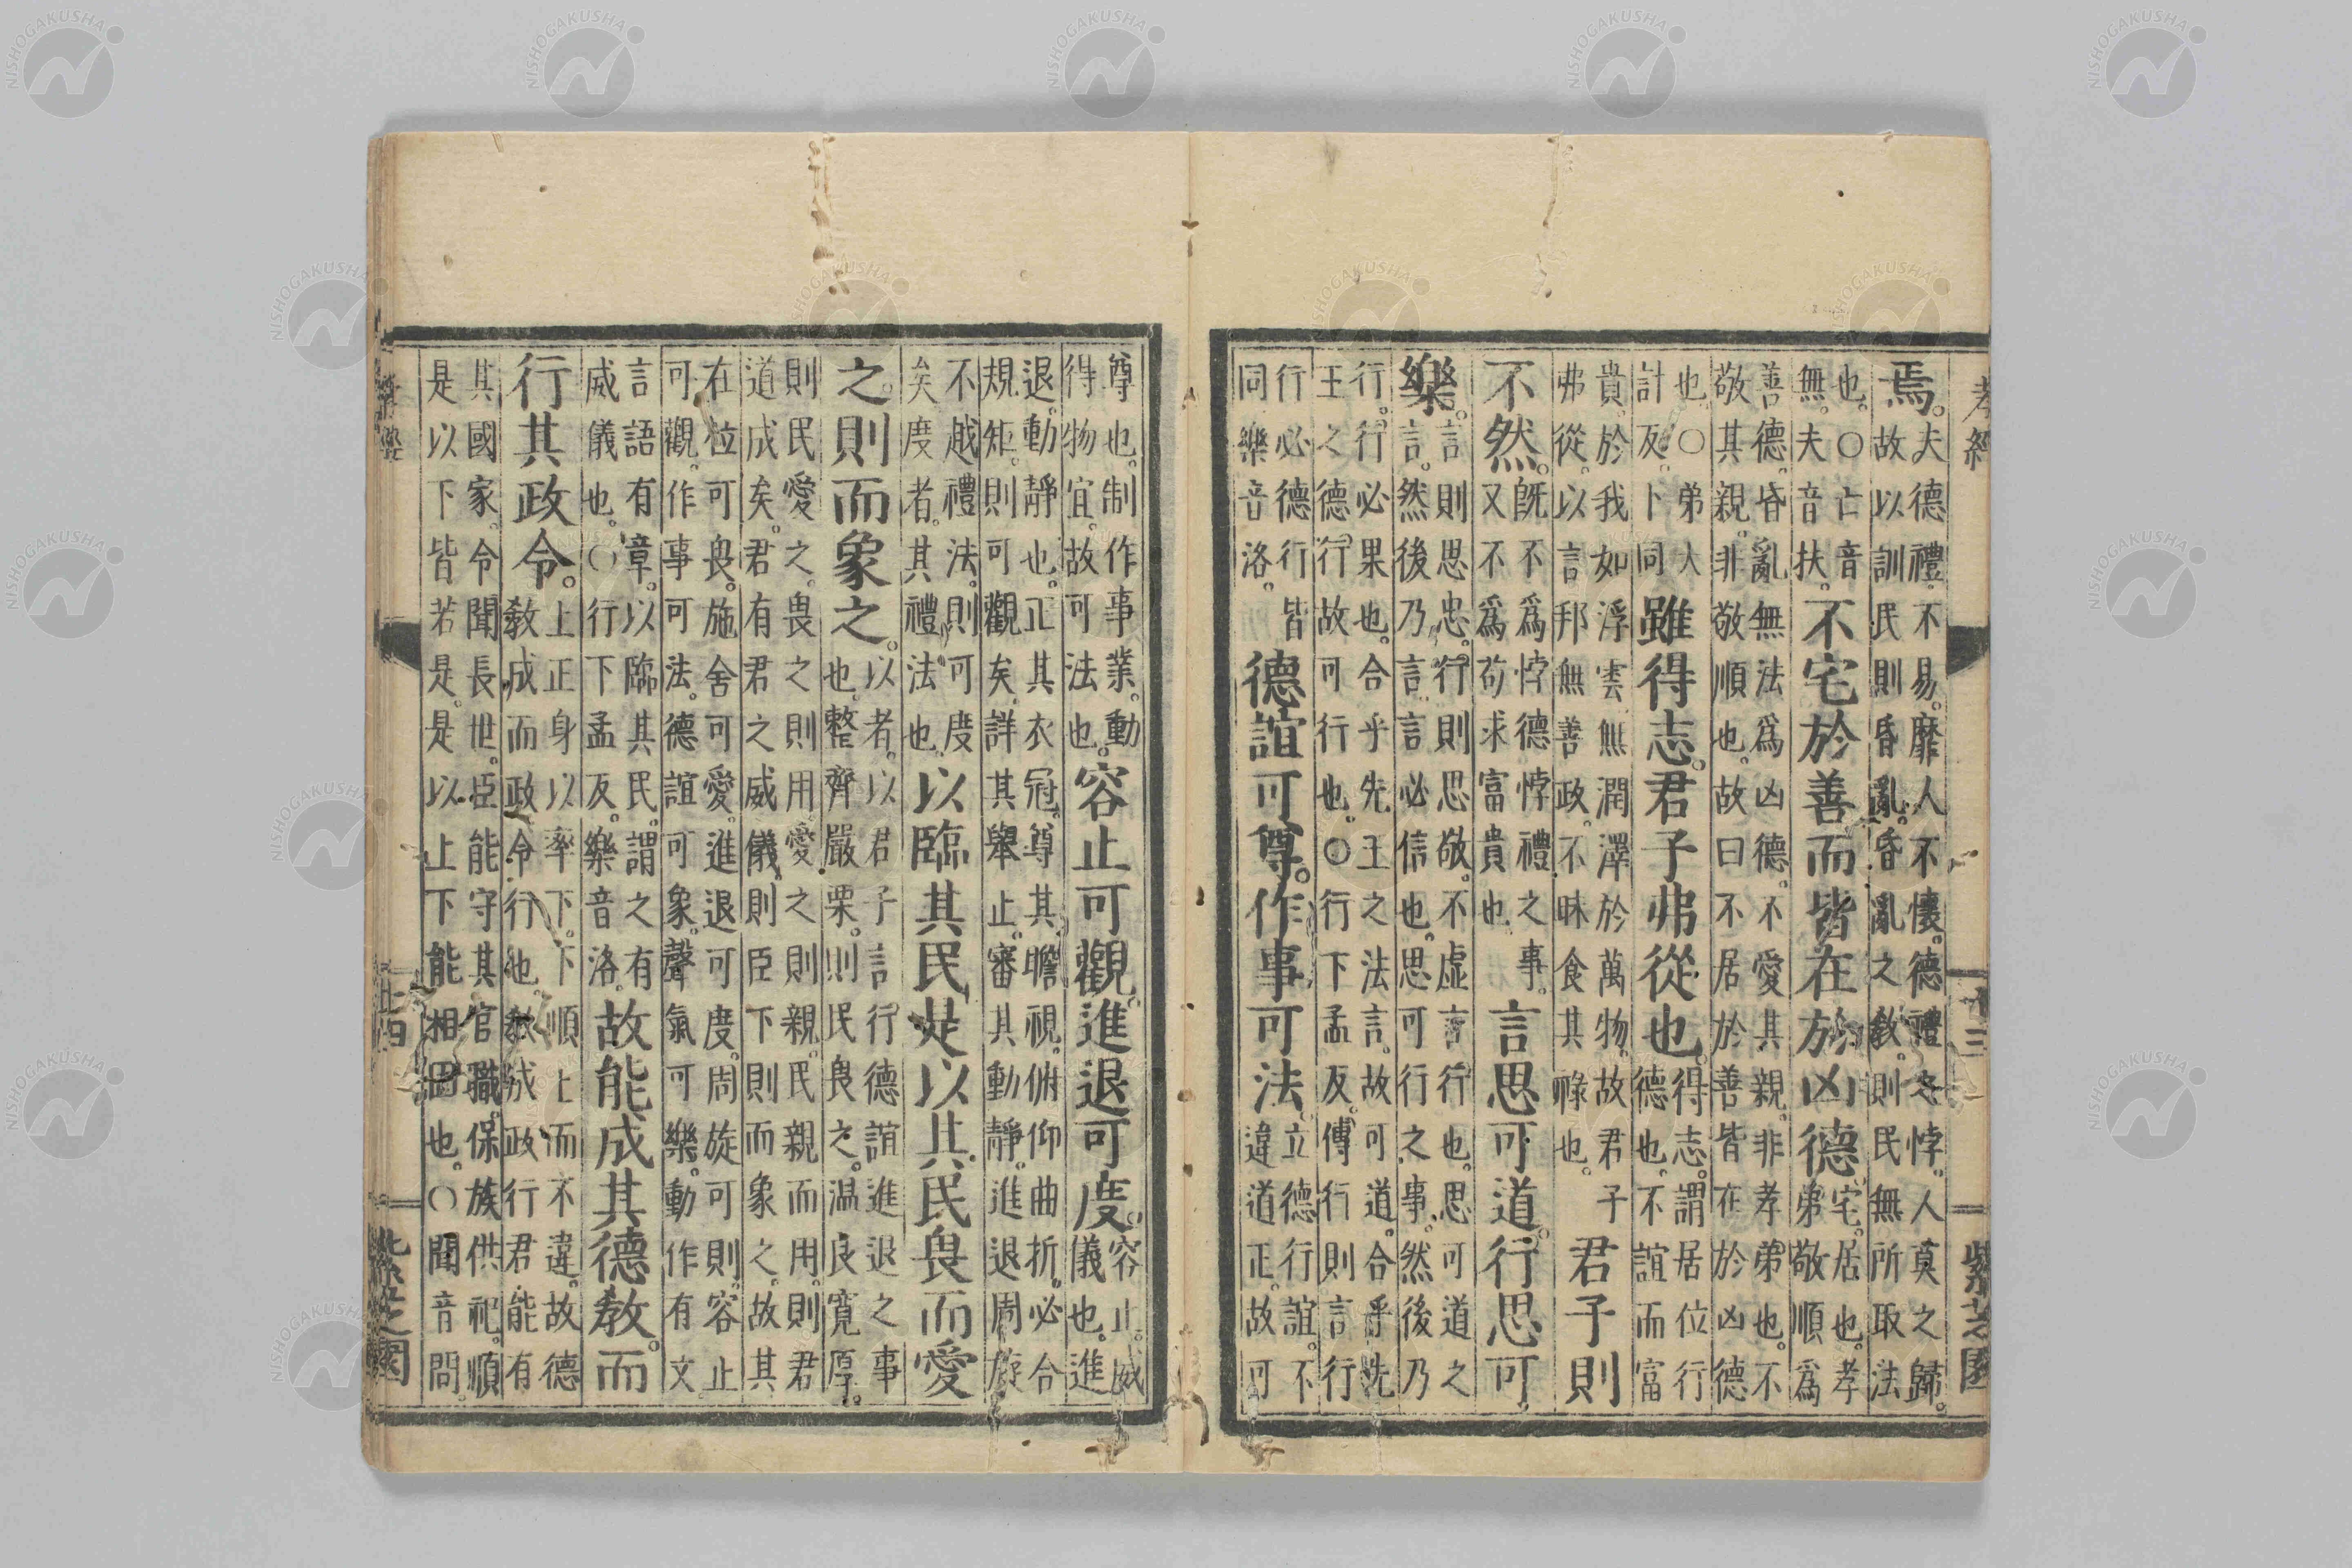 孝經 十三 紫芝園
焉。
夫德禮。不易。靡人不懷。德禮之悖。人莫之歸。
故以訓民則昏亂。昏亂之教。則民無所取法
也。○亡音
無。夫音扶。
不宅於善而皆在於凶德
宅。居也。孝
弟敬順爲
善德。昏亂無法爲凶德。不愛其親。非孝弟也。不
敬其親。非敬順也。故曰不居於善皆在於凶德
也。○弟大
計反。卜同
雖得志。君子弗從也。
得志。謂居位行
德也。不誼而富
貴。於我如浮雲無潤澤於萬物。故君子
弗從。以言邦無善政。不昧食其祿也。
君子則
不然。
旣不爲悖德悖禮之事。
又不不爲苟求富貴也
言思可道。行思可
樂。
言則思忠。行則思敬。不虛言行也。思可道之
言。然後乃言言必信也。思可行之事。然後乃
行。行必果也。合乎先王之法言。故可道。合乎先
王之德行故可行也。○行下孟反。傳行則言行
行必德行皆
同樂音洛。
德誼可尊。作事可法。
立德行誼。不
違道正。故可
尊也。制作事業。動
得物宜。故可法也。
容止可觀。進退可度。
容止。威
儀也。進
退。動靜也。正其衣冠。尊其瞻視。俯仰曲折。必合
規矩。則可觀矣。詳其舉止。審其動靜。進退周旋
不越禮法。則可度
矣度者。其禮法也。
以臨其民是以其民畏而愛
之。則而象之。
以者。以君子言行德誼進退之事
也。整齊嚴栗。則民畏之。溫良寬厚。
則民愛之。畏之則用。愛之則親。民親而用。則君
道成矣。君有君之威儀。則臣下則而象之。故其
在位可畏。施舍可愛。進退可度。周旋可則。容止
可觀。作事可法。德誼可象。聲氣可樂。動作有文
言語有章。以臨其民。謂之有
威儀也。○行下孟反。樂音洛。
故能成其德教。而
行其政令。
上正身以率下。下順上而不違。故德
教成而政令行也。教成政行君能有
其國家。令聞長世。臣能守其官職。保族供祀。順
是以下皆若是。是以上下能相固也。○聞音問。
十四 紫芝園
NISHOGAKUSHA